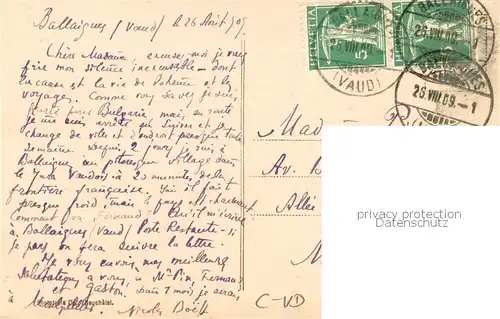 Ballaigues (Vaud) le 26 Août 09.
Chère Madame, excusez-moi je vous
prie mon silence inexcusable dont
la cause est la vie de bohème et les
voyages. Comme vous savez je suis
Bulgarie mais en route
je me suis arrêté en Suisse et je
change de ville et d'endroit presque toute
semaine. Depuis 2 jours je suis à
Ballaigue, un pittoresque village dans
le Jura Vaudois à 20 minutes de la
frontière française. Ici il fait
presque froid, mais le pays est charmant
Comment va Fernand? Qu'il m'écrive
à Ballaigues (Vaud) Poste Restante si
je pars on fera suivre la lettre.
Je vous envoie mes meilleures
salutations à vous, à Mr Pin, Fernand
et Gaston. Dans 1 mois je serai
à Montpellier. Nicolas
HELVETIA
25.VIII.09
(VAUD)
26.VIII.09-1
Mad
Av. B
Allé
C-VD
protection privacy
Datenschutz